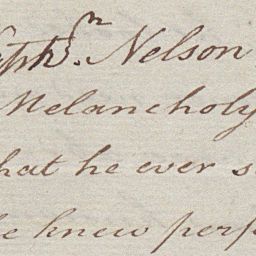 Nelson
Melancholy
hat he ever s
e knew perf